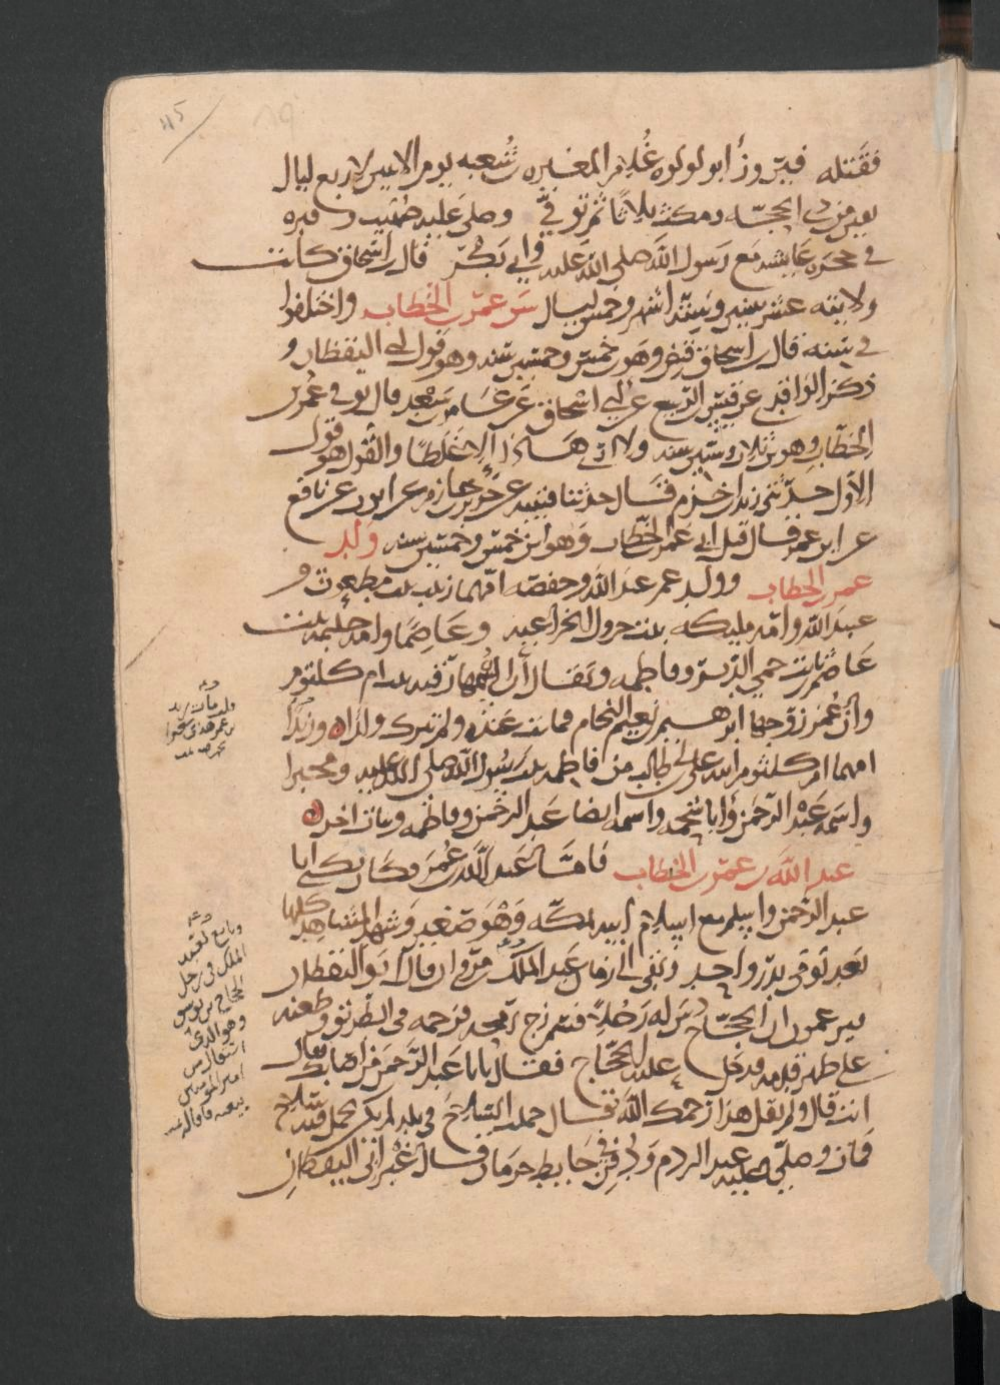 فقتله فيروز أبو لولوه غلام المغيره شعبه يوم الاثنين لاربع ليال
بقين من ذي الحجه ومكث ثلاثا ثم توفي وصلى عليه صهيب وقبره
في حجره عايشه مع رسول الله صلى الله عليه وابي بكر قال ابن اسحاق كانت
ولايته عشر سنين وستة اشهر وخمس ليال سن عمر بن الخطاب واختلفوا
في سنه قال ابن اسحاق قبض وهو ابن خمس وخمسين سنه وهو قول ابي اليقظان و
ذكر الواقدي عن قيس بن الربيع عن ابي اسحاق عن عامر بن سعد قال توفي عمر بن
الخطاب وهو بن ثلاث وستين سنه ولا ارى هذا الا غلطا والقول هو قول
الاول حدثني زيد بن اخزم قال حدثنا قتيبه عن جرير بن حازم عن ايوب عن نافع
عن ابن عمر قال قتل ابي عمر بن الخطاب وهو ابن خمس وخمسين سنه ولد
عمر بن الخطاب وولد عمر عبد الله وحفصه امهما زينب بنت مظعون و
عبيد الله وامه مليكه بنت جرول الخزاعيه وعاصما وامه جميله بنت
عاصم بن ثابت حمي الدبر وفاطمه ويقال ان اسمها رقيه بنت ام كلثوم
وان عمر زوجها ابرهيم بن نعيم النحام فماتت عنده ولم تترك ولدا وزيدا
امهما ام كلثوم ابنه علي بن ابي طالب من فاطمه بنت رسول الله صلى الله عليه ومجبرا
واسمه عبد الرحمن وابا شحمه واسمه ايضا عبد الرحمن وفاطمه وبنات اخر
عبد الله بن عمر بن الخطاب فاما عبد الله بن عمر فكان يكنى ابا
عبد الرحمن واسلم مع اسلام ابيه بمكه وهو صغير وشهد المشاهد كلها
بعد يوم بدر واحد وبقي الى زمان عبد الملك بن مروان قال ابو اليقظان
يزعمون ان الحجاج دس له رجلا فسم زج رمحه فزحمه في الطريق وطعنه
على ظهر قدمه فدخل عليه الحجاج فقال يا ابا عبد الرحمن من اصابك فقال
انت قال ولم يقول هذا رحمك الله قال حملت السلاح في بلد لم يكن يحمل فيه سلاح
فمات وصلى عليه عند الردم ودفن في حايط حرمان قال غير ابي اليقظان